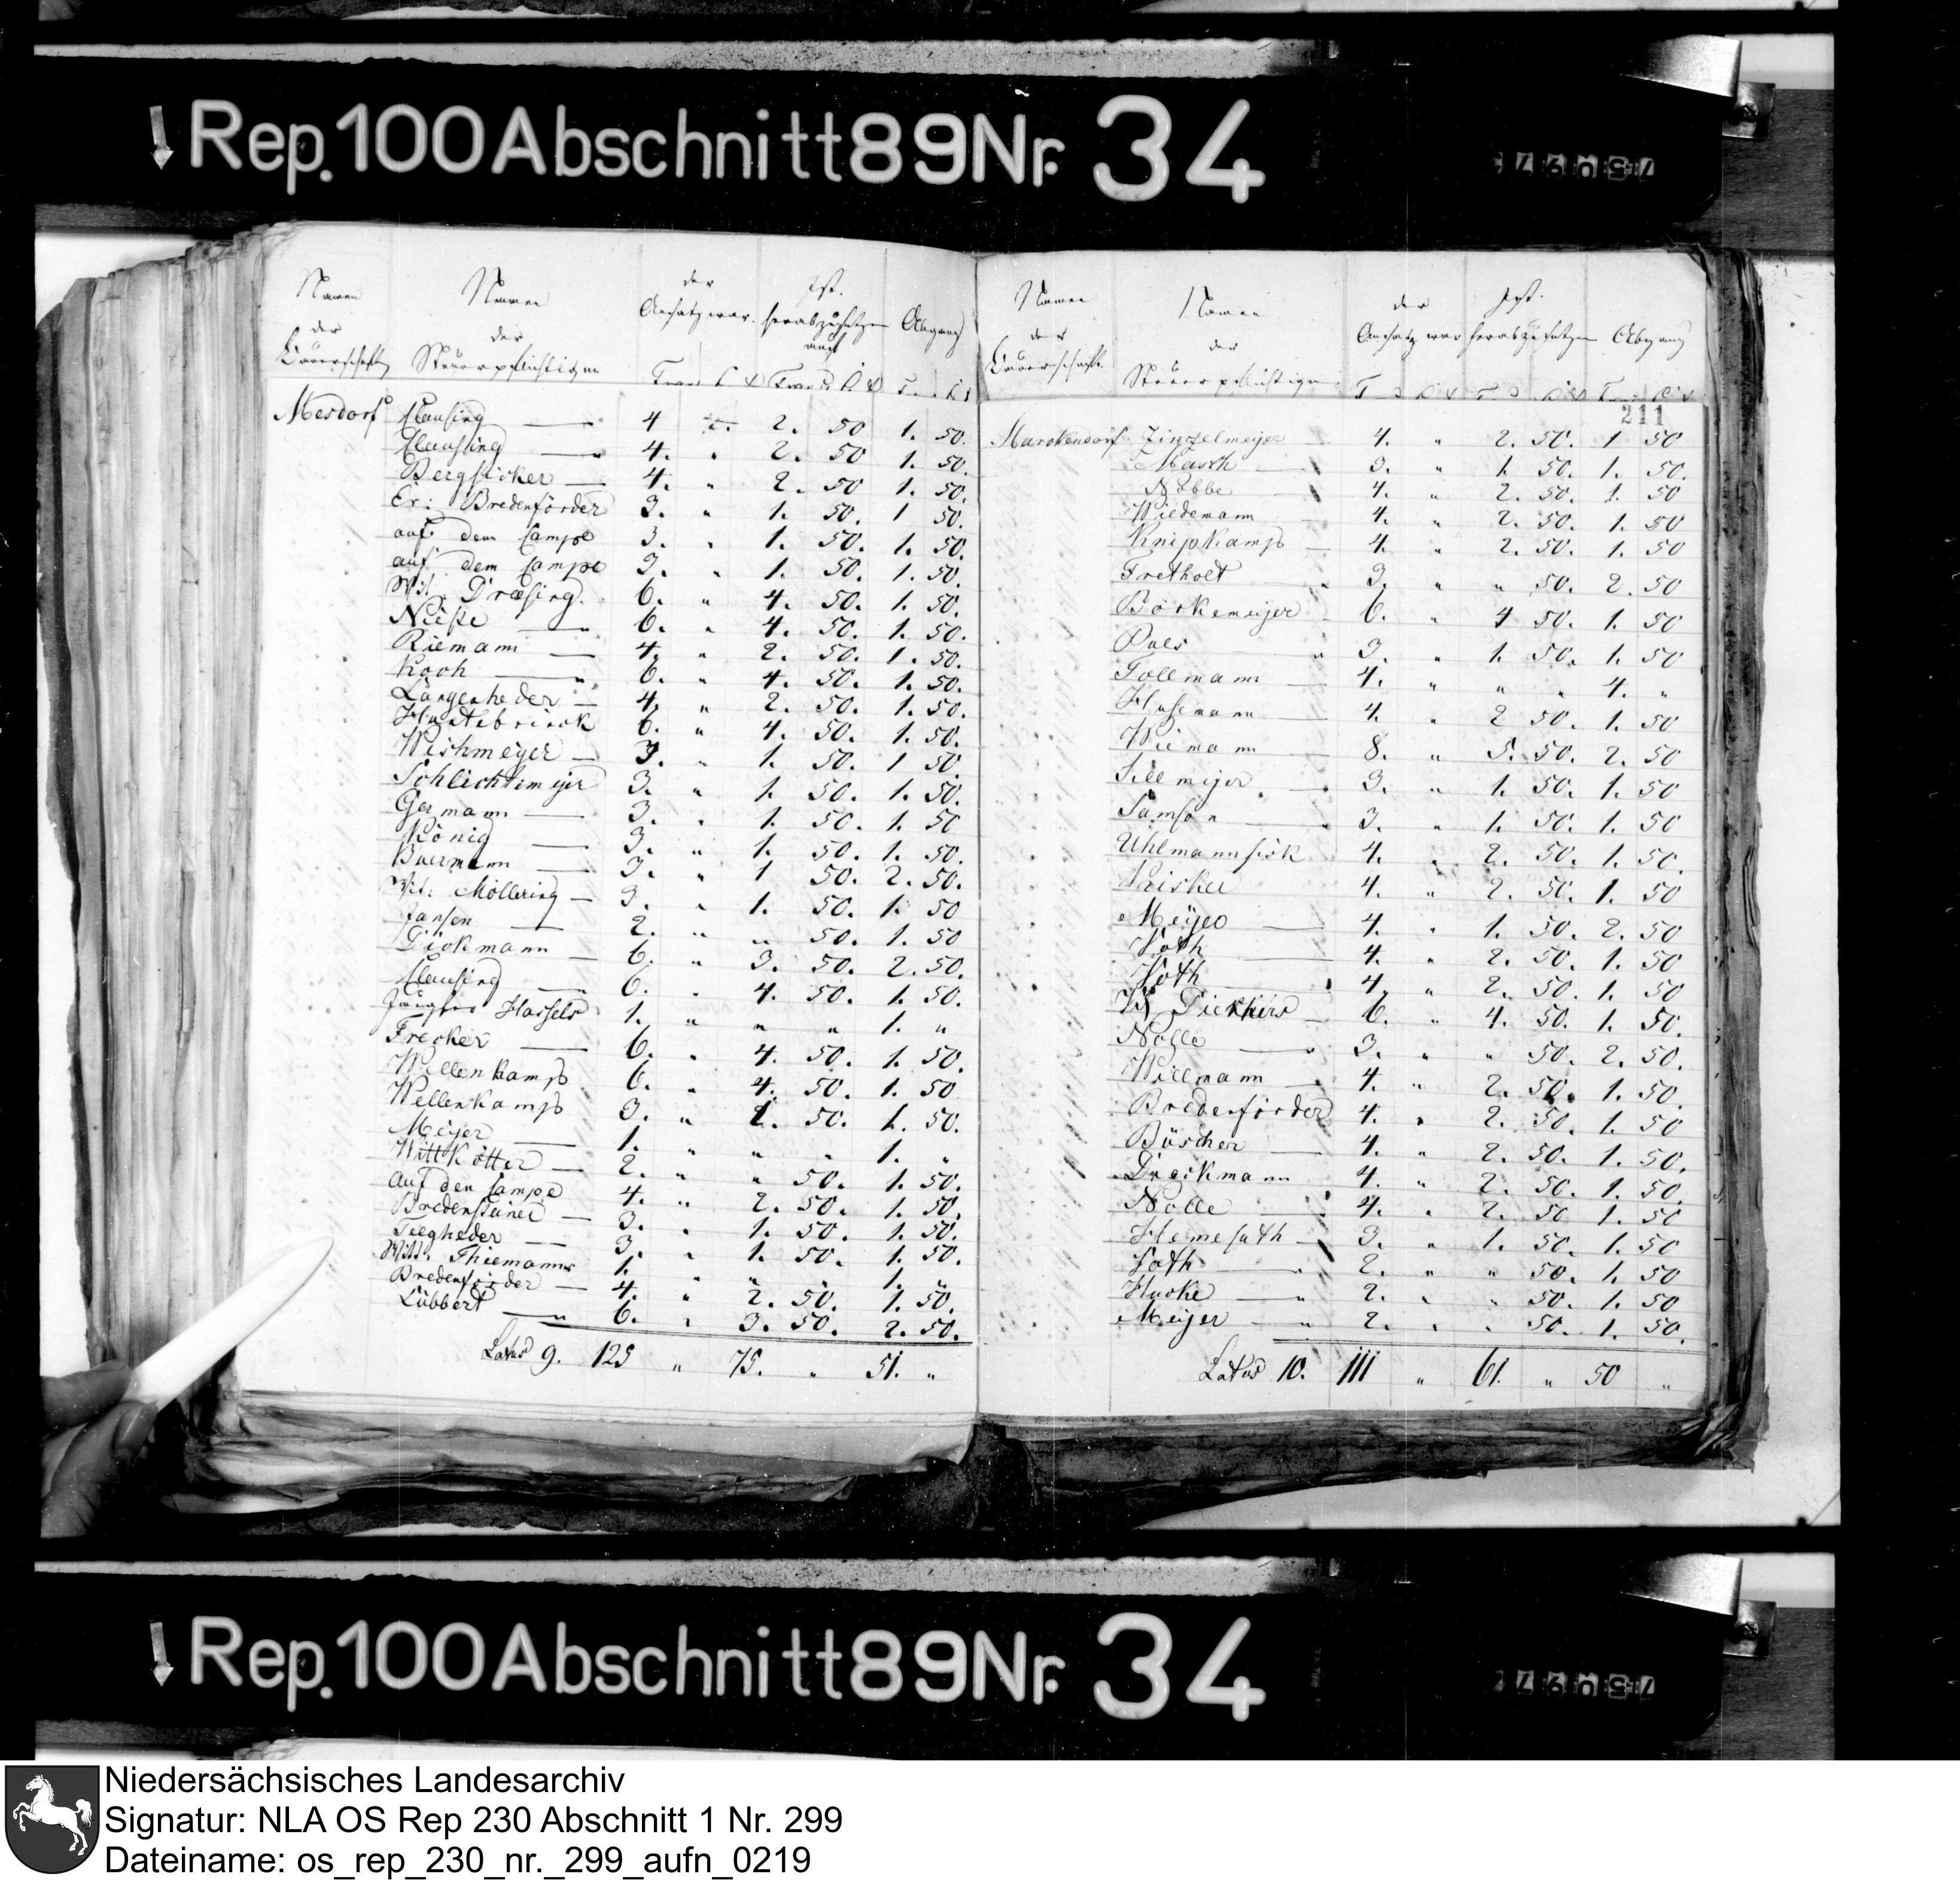 Rep.100Abschnitt89Nr. 34
Namen der Bauerschaft | Namen der Steuerpflichtigen | der Ansatz war. | Ist. herabzusetzen auf | Abgang
Mesdorf Clausing 4 " 2. 50 1. 50.
Clausing 4. " 2. 50 1. 50.
Bergsieker 4. " 2. 50 1. 50.
Er: Bredenförder 3. " 1. 50. 1 50.
auf dem Campe 3. " 1. 50. 1. 50.
auf dem Campe 3. " 1. 50. 1. 50.
Wit. Dræsing. 6. " 4. 50. 1. 50.
Nieße 6. " 4. 50. 1. 50.
Riemann 4. " 2. 50. 1. 50.
Koch 6. " 4. 50. 1. 50.
Längenheder 4. " 2. 50. 1. 50.
Huntebrinck 6. " 4. 50. 1. 50.
Wischmeyer 3. " 1. 50. 1 50.
Schlichtemeyer 3. " 1. 50. 1. 50.
Germann 3. " 1. 50. 1. 50
König 3. " 1. 50. 1. 50.
Buermann 3. " 1 50. 2. 50.
Wit: Möllering 3. " 1. 50. 1. 50
Jansen 2. " " 50. 1. 50
Dickmann 6. " 3. 50. 2. 50.
Clausing 6. " 4. 50. 1. 50.
Jungfer Hassels 1. " " " 1. "
Frecker 6. " 4. 50. 1. 50.
Wellenkamp 6. " 4. 50. 1. 50
Wellenkamp 3. " 1. 50. 1. 50.
Meyer 1. " " " 1. "
Wittkötter 2. " " 50. 1. 50.
auf den Campe 4. " 2. 50. 1. 50.
Bredensteiner 3. " 1. 50. 1. 50.
Teegheder 3. " 1. 50. 1. 50.
Witt. Thiemanns 1. " " " 1. "
Bredenförder 4. " 2. 50. 1. 50.
Lübbert 6. " 3. 50. 2. 50.
Latus 9. 125 " 75. " 51. "
Namen der Bauerschaft | Namen der Steuerpflichtigen | der Ansatz war | Ist. herabzusetzen | Abgang
211
Markendorf Zingelmeyer 4. " 2. 50. 1 50
Masch 3. " 1. 50. 1. 50.
Nobbe 4. " 2. 50. 1. 50
Wiedemann 4. " 2. 50. 1. 50
Knipkamp 4. " 2. 50. 1. 50
Fretholt 3. " " 50. 2. 50
Borkemeyer 6. " 4 50. 1. 50
Pues 3. " 1. 50. 1. 50
Tollmann 4. " " " 4. "
Husmann 4. " 2 50. 1. 50
Wiemann 8. " 5. 50. 2. 50
Sillmeyer 3. " 1. 50. 1. 50
Samson 3. " 1. 50. 1. 50
Uhlmannsiek 4. " 2. 50. 1. 50.
Krisker 4. " 2. 50. 1. 50
Meyer 4. " 1. 50. 2. 50
Voth 4. " 2. 50. 1. 50
Voth 4. " 2. 50. 1. 50
W Dirkers 6. " 4. 50. 1. 50.
Nolle 3. " " 50. 2. 50.
Willmann 4. " 2. 50. 1. 50.
Bredenförder 4. " 2. 50. 1. 50
Büscher 4. " 2. 50. 1. 50.
Dreckmann 4. " 2. 50. 1. 50.
Nolle 4. " 2. 50 1. 50
Hemesath 3. " 1. 50. 1. 50
Voth 2. " " 50. 1. 50
Hucke 2. " " 50. 1. 50
Meyer 2. " " 50. 1. 50.
Latus 10. 111 " 61. " 50 "
Rep.100Abschnitt89Nr. 34
Niedersächsisches Landesarchiv
Signatur: NLA OS Rep 230 Abschnitt 1 Nr. 299
Dateiname: os_rep_230_nr._299_aufn_0219